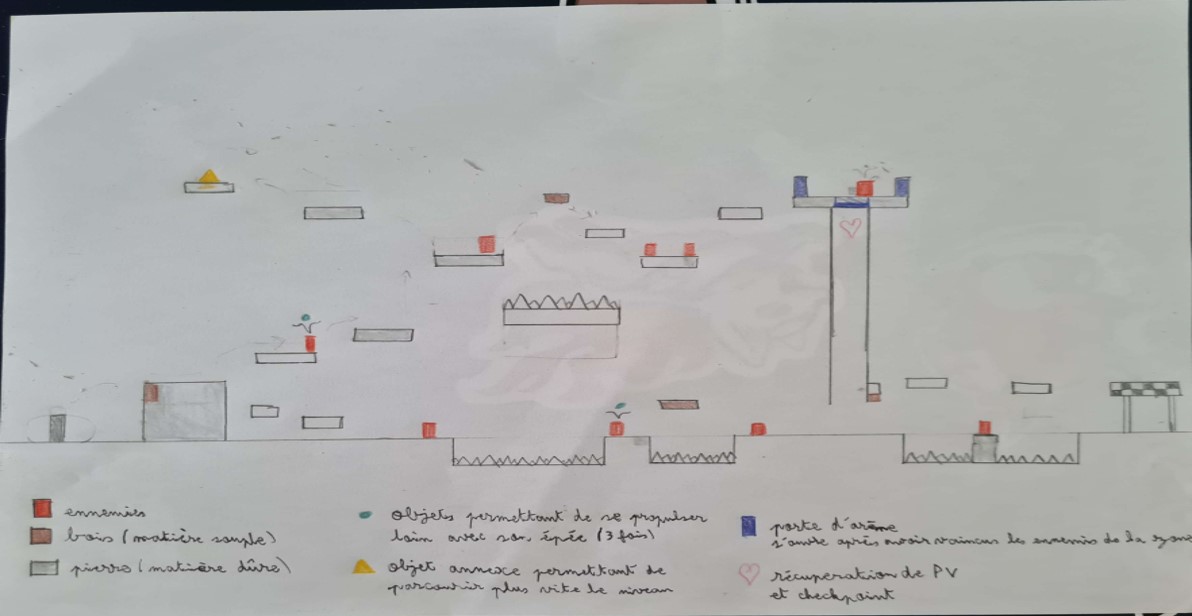 ennemies
bois (matière souple)
pierre (matière dûre)
objets permettant de se propulser
loin avec son épée (3 fois)
objet annexe permettant de
parcourir plus vite le niveau
porte d'arène
s'ouvre après avoir vaincus les ennemis de la zone
récuperation de PV
et checkpoint